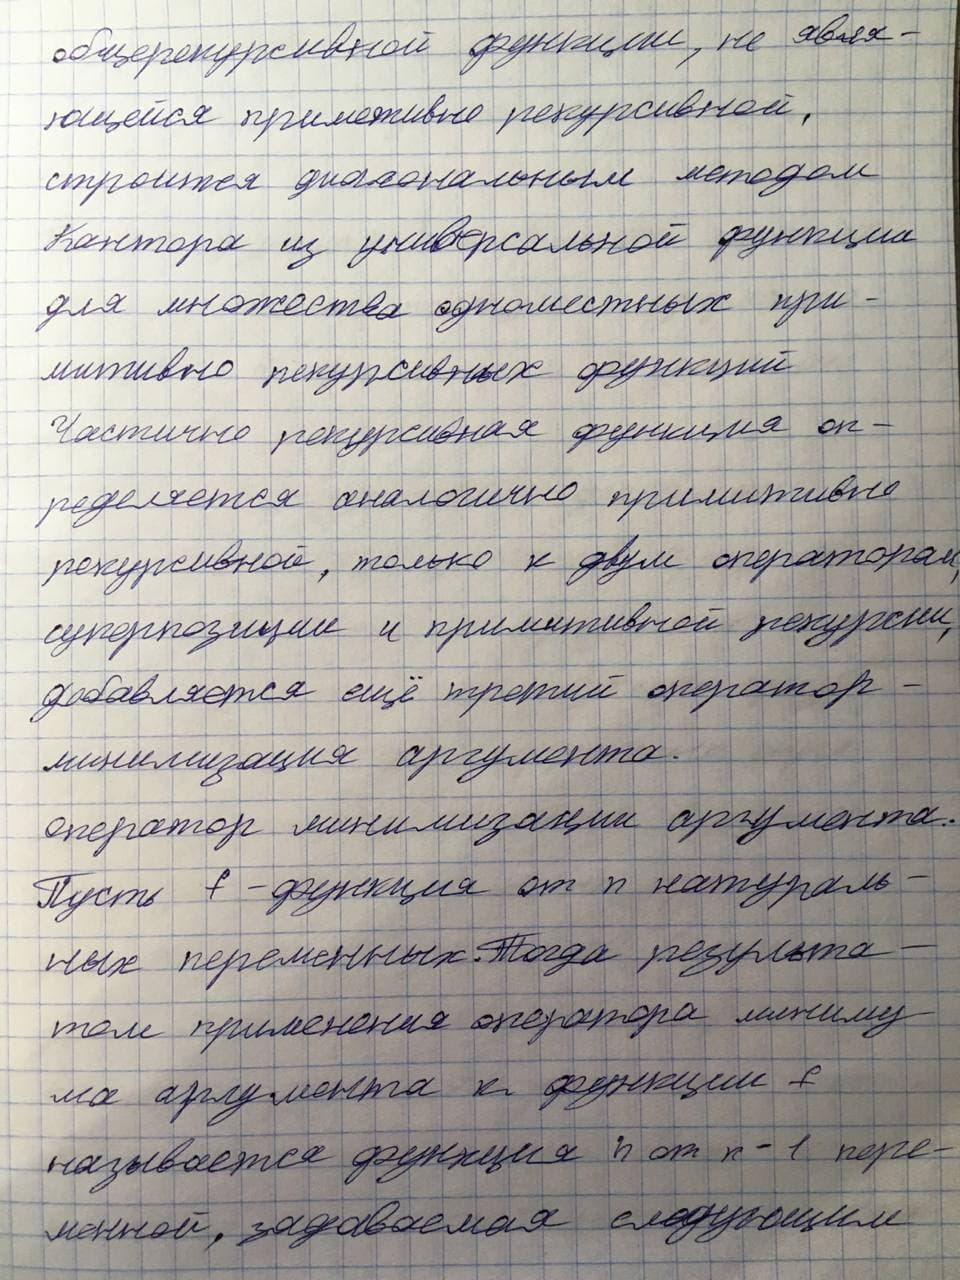 общерекурсивной функции, не явля-
ющейся примитивно рекурсивной,
строится диагональным методом
Кантора из универсальной функции
для множества одноместных при-
митивно рекурсивных функций
Частично рекурсивная функция оп-
ределяется аналогично примитивно
рекурсивной, только к двум операторам,
суперпозиции и примитивной рекурсии,
добавляется ещё третий оператор -
минимизация аргумента.
оператор минимизации аргумента.
Пусть f - функция от n натураль-
ных переменных. Тогда результа-
том применения оператора миниму
ма аргумента к функции f
называется функция h от n-1 пере-
менной, задаваемая следующим